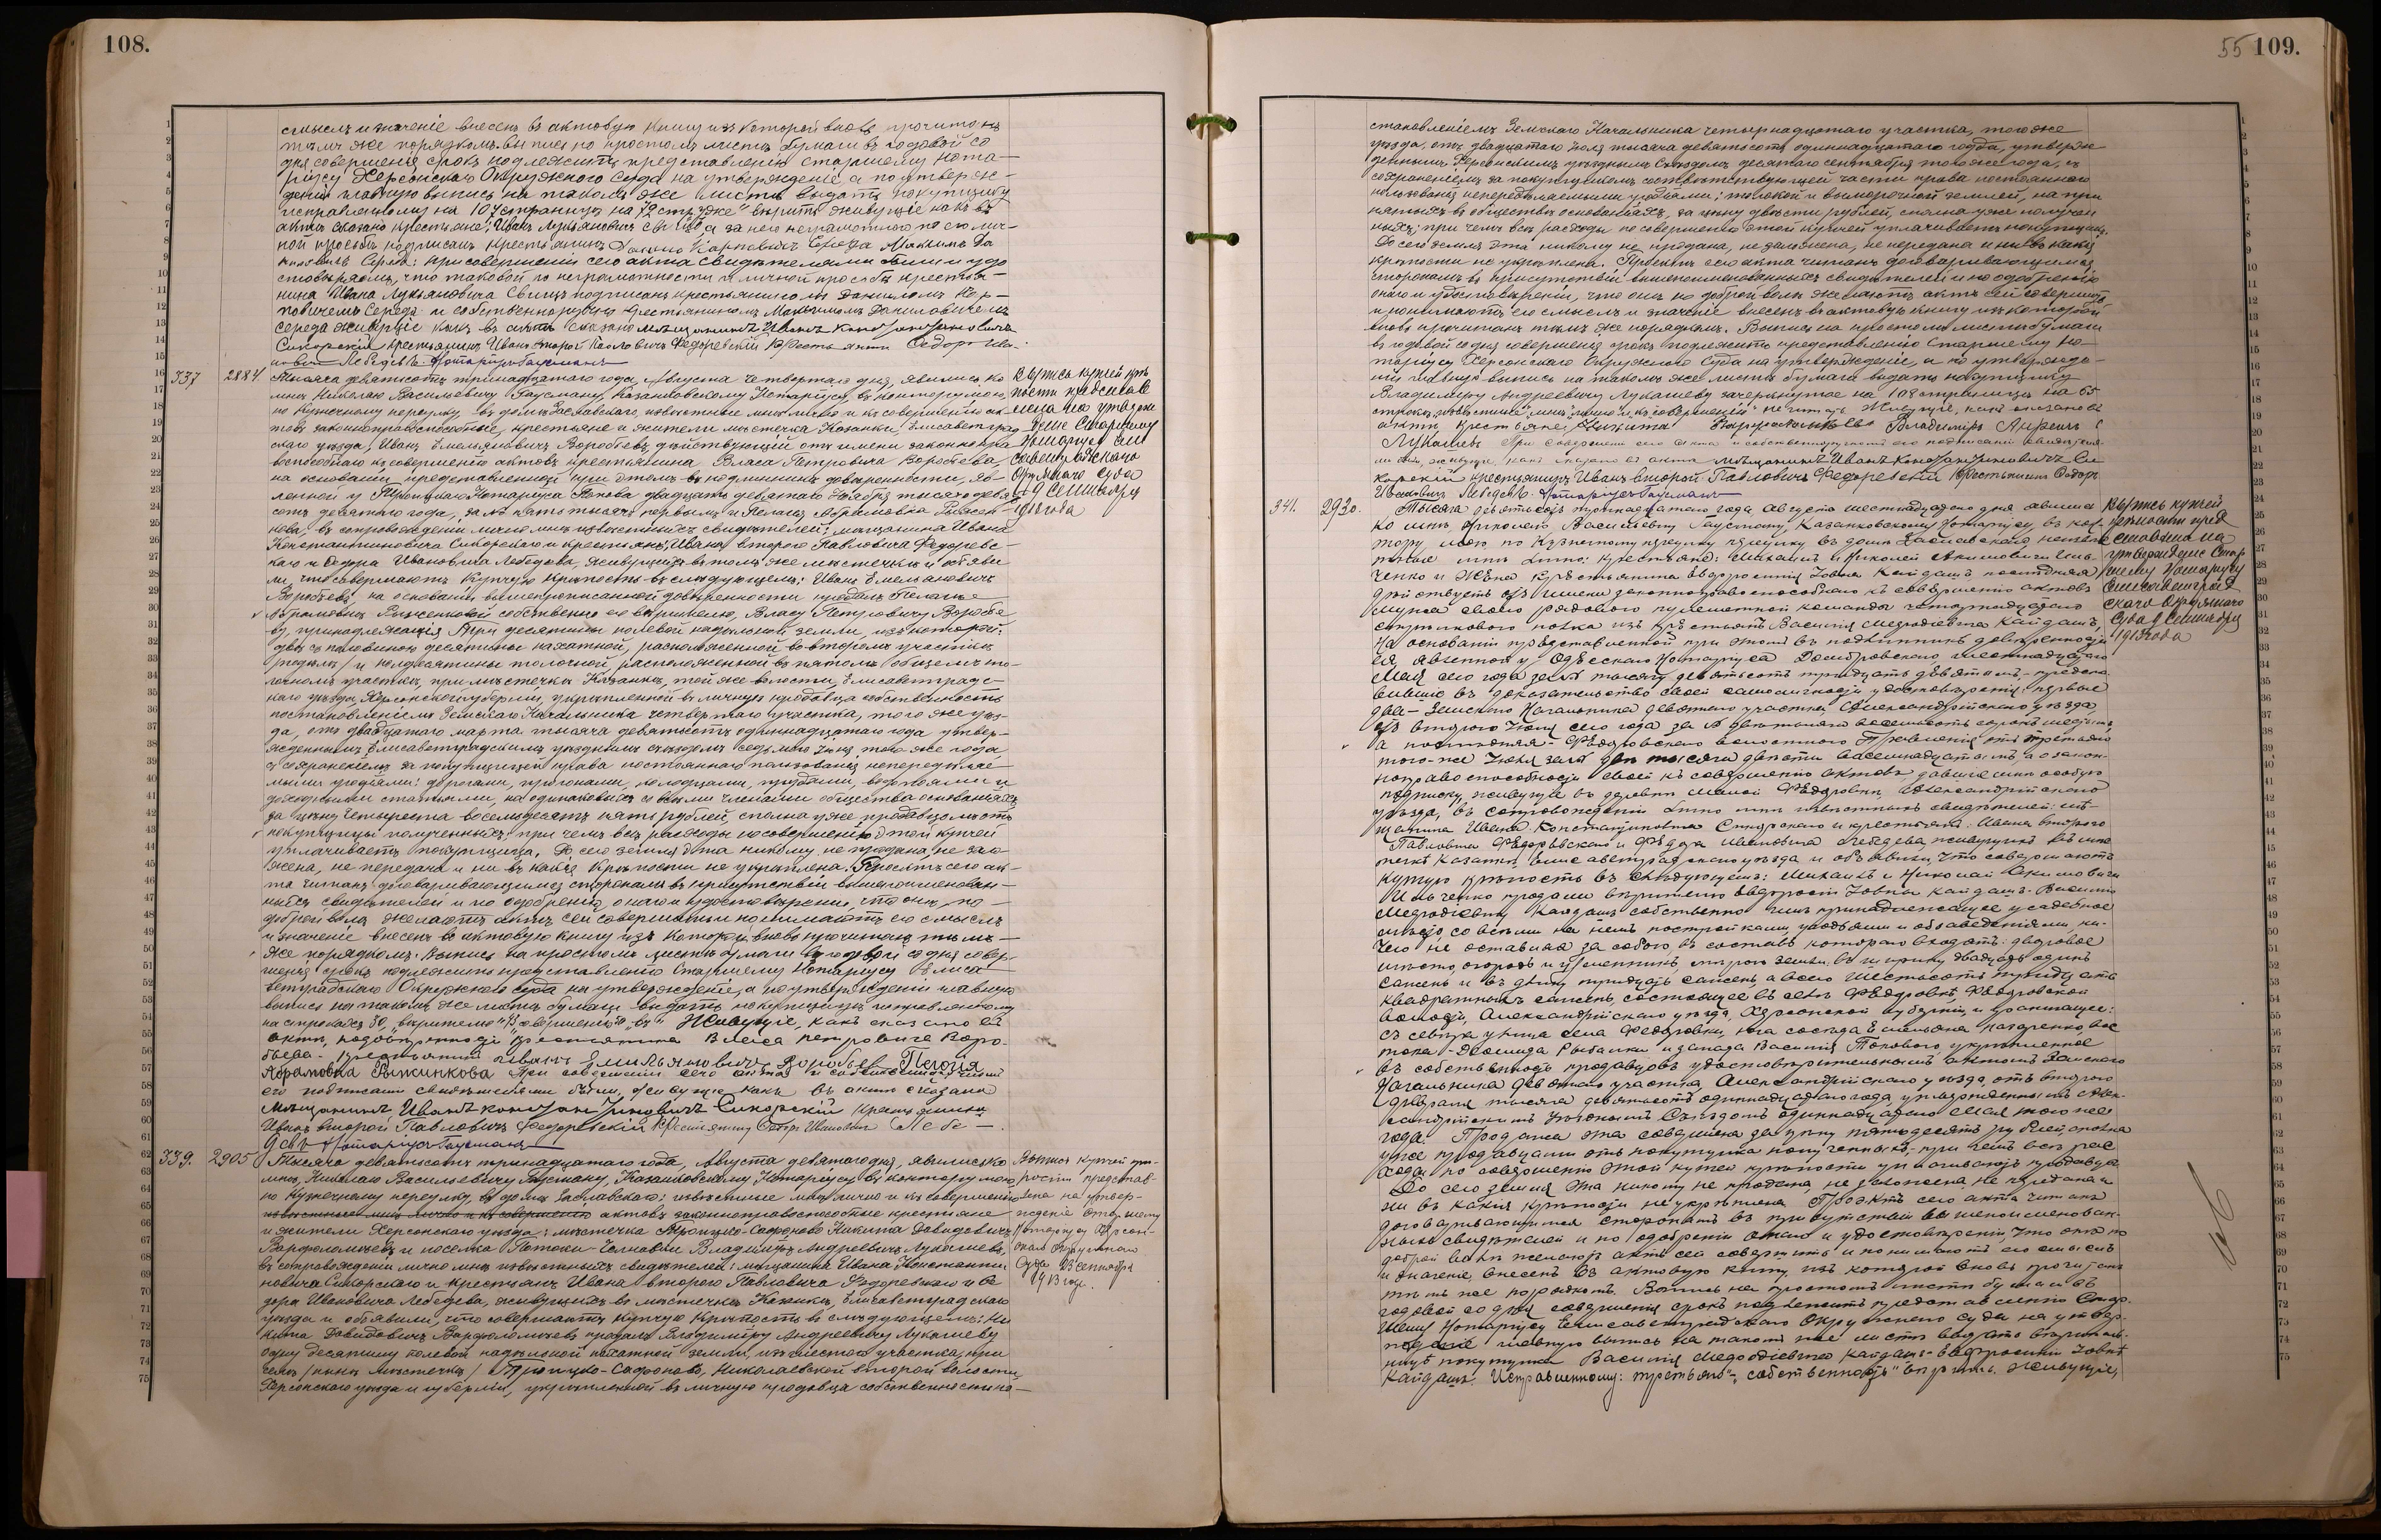 108.
смыслъ и значеніе внесенъ въ актовую книгу изъ которой вновь прочитанъ
тѣмъ же порядкомъ. Выпись на простомъ листѣ бумаги въ годовой со
дня совершенія срокъ подлежитъ представленію старшему Нота-
ріусу Херсонскаго Окружнаго Суда на утвержденіе а по утверж-
деніи главную выпись на такомъ же листѣ выдать покупщику
исправленному на 107 страницѣ на 72 стр. "уже" вѣрить живущіе какъ въ
актѣ сказано крестьяне: Иванъ Лукьяновичъ а за него неграмотнаго по его лич-
ной просьбѣ подписалъ крестьянинъ Данило Карповичъ Середа Максимъ Да
ниловичъ Середа: при совершеніи сего акта свидѣтелями были и удо
стовѣряемъ, что таковой по неграмотности и личной просьбѣ крестья-
нина Ивана Лукьяновича подписанъ крестьяниномъ Даниломъ Кар-
повичемъ Середа и собственноручно крестьяниномъ Максимомъ Даниловичемъ
Середа живущіе какъ въ актѣ сказано мѣщанинъ Иванъ Константиновичъ
Сикорскій крестьянинъ Иванъ второй Павловичъ Федоревскій крестьянинъ Федоръ Ива-
новичъ Лебедевъ. Нотаріусъ Гаусманъ
337 2884. Тысяча девятьсотъ тринадцатаго года, Августа четвертаго дня, явились ко
мнѣ, Николаю Васильевичу Гаусману, Казанковскому Нотаріусу, въ контору мою,
по Кузнечному переулку, въ домѣ Заславскаго, извѣстные мнѣ лично и къ совершенію ак
товъ законоправоспособные, крестьяне и жители мѣстечка Казанки, Елисаветград-
скаго уѣзда, Иванъ Емельяновичъ Воробьевъ, дѣйствующій отъ имени законнопра
воспособнаго къ совершенію актовъ крестьянина Власа Петровича Воробьева,
на основаніи представленной при этомъ въ подлинникѣ довѣренности, яв-
ленной у Нотаріуса Попова двадцать девятаго Декабря тысяча девять
сотъ девятаго года, за № пять тысячъ первымъ и Пелагея Абрамовна Рыжен-
кова, въ сопровожденіи лично мнѣ извѣстныхъ свидѣтелей: мѣщанина Ивана
Константиновича Сикорскаго и крестьянъ: Ивана второго Павловича Федоревс-
каго и Федора Ивановича Лебедева, живущихъ въ томъ же мѣстечкѣ и объяви
ли, что совершаютъ купчую крѣпость въ слѣдующемъ: Иванъ Емельяновичъ
Воробьевъ на основаніи вышепрописанной довѣренности продалъ Пелагеѣ
Абрамовнѣ Рыженковой собственно его вѣрителю, Власу Петровичу Воробье
ву, принадлежащія три десятины полевой надѣльной земли, изъ которой:
двѣ съ половиною десятины пахатной, расположенной во второмъ участкѣ
и полдесятины толочной, расположенной въ пятомъ /общемъ то-
лочномъ участкѣ, при мѣстечкѣ Казанкѣ, той же волости, Елисаветградс-
каго уѣзда, Херсонской губерніи, укрѣпленной въ личную продавца собственность
постановленіемъ Земскаго Начальника четвертаго участка, того же уѣз-
да, отъ двадцатаго марта тысяча девятьсотъ одиннадцатаго года утвер-
жденнымъ Елисаветградскимъ уѣзднымъ съѣздомъ седьмого Іюня того же года
съ сохраненіемъ за покупщицей права постояннаго пользованія непередѣляе-
мыми угодіями: дорогами, прогонами, колодцами, прудами, водопоями и
доходными статьями, на одинаковыхъ со всѣми членами общества основаніяхъ
за цѣну четыреста восемьдесятъ пять рублей, сполна уже продавцомъ отъ
покупщицы полученныхъ, при чемъ всѣ расходы по совершенію этой купчей
уплачиваетъ покупщица. До сего земля эта никому не продана, не зало
жена, не передана и ни въ какія крѣпости не укрѣплена. Проектъ сего ак-
та читанъ договаривающимся сторонамъ въ присутствіи вышепоименован-
ныхъ свидѣтелей и по одобреніи онаго и удостовѣреніи, что онѣ по
доброй волѣ желаютъ актъ сей совершить и понимаютъ его смыслъ
и значеніе внесенъ въ актовую книгу изъ которой вновь прочитанъ тѣмъ-
же порядкомъ. Выпись на простомъ листѣ бумаги въ годовой со дня совер-
шенія срокъ подлежитъ представленію Старшему Нотаріусу Елиса-
ветградскаго Окружнаго Суда на утвержденіе, а по утвержденіи главную
выпись на такомъ же листѣ бумаги выдать покупщицѣ исправленному
на строкахъ 30, "вѣрителю" 43 "совершенію" "въ" Живущіе, какъ сказано въ
актѣ, по довѣренности крестьянина Власа Петровича Воро-
бьева - крестьянинъ Иванъ Емильяновичъ Воробьев Пегогія
Абрамовна Рыжинкова При совершеніи сего акта и собственноручной
его подписаніи свидѣтелями были, живущіе какъ въ актѣ сказано
Мѣщанинъ Иванъ Константиновичъ Сикорскій крестьянинъ
Иванъ второй Павловичъ Федоревскій Крестьянинъ Федоръ Ивановичъ Лебе-
девъ Нотаріусъ Гаусманъ
Выпись купчей крѣ
пости представ
лена на утверж
деніе Старшему
Нотаріусу Ели
саветградскаго
Окружнаго Суда
9 Сентября
1913 года
339. 2905 Тысяча девятьсотъ тринадцатаго года, Августа девятаго дня, явились ко
мнѣ, Николаю Васильевичу Гаусману, Казанковскому Нотаріусу въ контору мою
по Кузнечному переулку, въ домѣ Заславскаго: извѣстные мнѣ лично и къ совершенію
извѣстные мнѣ лично и къ совершенію актовъ законноправоспособные крестьяне
и жители Херсонскаго уѣзда: мѣстечка Троицко-Сафоново Никита Давидовичъ
Варфоломѣевъ и поселка Владиміръ Андреевичъ Лукашевъ,
въ сопровожденіи лично мнѣ извѣстныхъ свидѣтелей: мѣщанина Ивана Константи
новича Сикорскаго и крестьянъ Ивана второго Павловича Федоревскаго и Фе
дора Ивановича Лебедева, живущихъ въ мѣстечкѣ Казанкѣ, Елисаветградскаго
уѣзда и объявили, что совершаютъ купчую крѣпость въ слѣдующемъ: Ни
кита Давидовичъ Варфоломѣевъ продалъ Владиміру Андреевичу Лукашеву
одну десятину полевой надѣльной пахатной земли, изъ шестого участка, при
селѣ /нынѣ мѣстечкѣ/ Троицко-Сафоновѣ, Николаевской второй волости,
Херсонскаго уѣзда и губерніи, укрѣпленной въ личную продавца собственность по-
Выпись купчей крѣ-
пости представ-
лена на утвер-
жденіе Старшему
Нотаріусу Херсон-
скаго Окружнаго
Суда 13 Сентября
1913 года.
55 109.
становленіемъ Земскаго Начальника четырнадцатаго участка, того же
уѣзда, отъ двадцатаго Іюля тысяча девятьсотъ одиннадцатаго года, утверж
деннымъ Херсонскимъ уѣзднымъ Съѣздомъ десятаго сентября того же года, съ
сохраненіемъ за покупщикомъ соотвѣтствующей части права постояннаго
пользованія непередѣляемыми угодіями: толокой и выморочной землей, на при
нятыхъ въ обществѣ основаніяхъ, за цѣну двѣсти рублей, сполна уже получен
ныхъ, при чемъ всѣ расходы по совершенію этой купчей уплачиваетъ покупщикъ.
До сего земля эта никому не продана, не заложена, не передана и ни въ какія
крѣпости не укрѣплена. Проектъ сего акта читанъ договаривающимся
сторонамъ въ присутствіи вышепоименованныхъ свидѣтелей и по одобреніи
онаго и удостовѣреніи, что онѣ по доброй волѣ желаютъ актъ сей совершить
и понимаютъ его смыслъ и значеніе внесенъ въ актовую книгу изъ которой
вновь прочитанъ тѣмъ же порядкомъ. Выпись на простомъ листѣ бумаги
въ годовой со дня совершенія срокъ подлежитъ представленію Старшему Но-
таріусу Херсонскаго Окружнаго Суда на утвержденіе, а по утвержде-
ніи главную выпись на такомъ же листѣ бумаги выдать покупщику
Владиміру Андреевичу Лукашеву зачеркнутое на 108 страницѣ на 65
строкѣ "извѣстные мнѣ лично и къ совершенію" не читать Живущіе, какъ сказано въ
актѣ крестьяне: Никита Варфоломѣевъ Владиміръ Андреичъ
Лукашевъ При совершеніи сего акта и собственноручномъ его подписаніи свидѣтеля-
ми были, живущіе какъ сказано въ актѣ мѣщанинъ Иванъ Константиновичъ Си
корскій крестьянинъ Иванъ второй Павловичъ Федоревскій крестьянинъ Федоръ
Ивановичъ Лебедевъ. Нотаріусъ Гаусманъ
341. 2920. Тысяча девятьсотъ тринадцатаго года, Августа шестнадцатаго дня явились
ко мнѣ, Николаю Васильевичу Гаусману, Казанковскому Нотаріусу, въ кон-
тору мою по Кузнечному переулку въ домѣ Заславскаго неизвѣс
тные мнѣ лично: крестьяне: Михаилъ и Николай Акимовичи Иль-
ченко и жена крестьянина Евфросинія Іовна Кайдашъ послѣдняя
дѣйствуетъ отъ имени законноправоспособнаго къ совершенію актовъ
мужа своего рядового пулеметной команды четырнадцатаго
стрѣлковаго полка изъ крестьянъ Василія Мефодіевича Кайдашъ,
на основаніи представленной при этомъ въ подлинникѣ довѣренности
ея, явленной у Одесскаго Нотаріуса Домбровскаго, шестнадцатаго
Мая сего года за № тысяча девятьсотъ тридцать девятымъ,- предста
вившіе въ доказательство своей самоличности удостовѣренія: первые
два - Земскаго Начальника девятаго участка Александрійскаго уѣзда,
отъ второго Іюля сего года за № двѣ тысячи восемьсотъ сорокъ шестымъ,
а послѣдняя - Федоровскаго волостного Правленія отъ третьяго
того-же Іюля за № двѣ тысячи двѣсти восемнадцатымъ, а о закон-
ноправоспособности своей къ совершенію актовъ, давшіе мнѣ особую
подписку, живущіе въ деревнѣ Малой Федоровкѣ, Александрійскаго
уѣзда, въ сопровожденіи лично мнѣ извѣстныхъ свидѣтелей: мѣ-
щанина Ивана Константиновича Сикорскаго и крестьянъ: Ивана второго
Павловича Федоревскаго и Федора Ивановича Лебедева, живущихъ въ мѣс
течкѣ Казанкѣ, Елисаветградскаго уѣзда и объявили, что совершаютъ
купчую крѣпость въ слѣдующемъ: Михаилъ и Николай Акимовичи
Ильченко продали вѣрителю Евфросиніи Іовны Кайдашъ - Василію
Мефодіевичу Кайдашъ собственно имъ принадлежащее усадебное
мѣсто со всѣми на немъ постройками, угодьями и обзаведеніями, ни-
чего не оставляя за собою въ составъ котораго входятъ: дворовое
мѣсто, огородъ и гуменникъ, мѣрою земли: въ ширину двадцать одинъ
сажень и въ длину тридцать сажень, а всего шестьсотъ тридцать
квадратныхъ сажень, состоящее въ селѣ Федоровкѣ, Федоровской
волости, Александрійскаго уѣзда, Херсонской губерніи, и граничащее:
съ сѣвера улица села Федоровки, юга сосѣда Емельяна Назаренко, вос
тока - Рыбалки и запада Василія укрѣпленное
въ собственность продавцовъ удостовѣрительнымъ актомъ Земскаго
Начальника девятаго участка, Александрійскаго уѣзда, отъ второго
Февраля тысяча девятьсотъ одиннадцатаго года, утвержденнымъ Алек-
сандрійскимъ Уѣзднымъ Съѣздомъ одиннадцатаго Мая того же
года. Продажа эта совершена за цѣну пятьдесятъ рублей сполна
уже продавцами отъ покупщика полученныхъ, при чемъ всѣ рас
ходы по совершенію этой купчей крѣпости уплачиваютъ продавцы
До сего земля эта никому не продана, не заложена, не передана и
ни въ какія крѣпости не укрѣплена Проэктъ сего акта читанъ
договаривающимся сторонамъ въ присутствіи вышепоименован-
ныхъ свидѣтелей и по одобреніи онаго и удостовѣреніи, что онѣ по
доброй волѣ желаютъ актъ сей совершить и понимаютъ его смыслъ
и значеніе, внесенъ въ актовую книгу, изъ которой вновь прочитанъ
тѣмъ же порядкомъ. Выпись на простомъ листѣ бумаги въ
годовой со дня совершенія срокъ подлежитъ представленію Стар-
шему Нотаріусу Елисаветградскаго Окружнаго Суда на утвер-
жденіе главную выпись на такомъ же листѣ выдать вѣритель-
ницѣ покупщика Василія Мефодіевича Кайдашъ - Евфросиніи Іовнѣ
Кайдашъ. Исправленному: "третьяго", "собственность" вѣрить. Живущіе,
Выпись купчей
крѣпости пред
ставлена на
утвержденіе Стар
шему Нотаріусу
Елисаветград
скаго Окружнаго
Суда 9 Сентября
1913 года